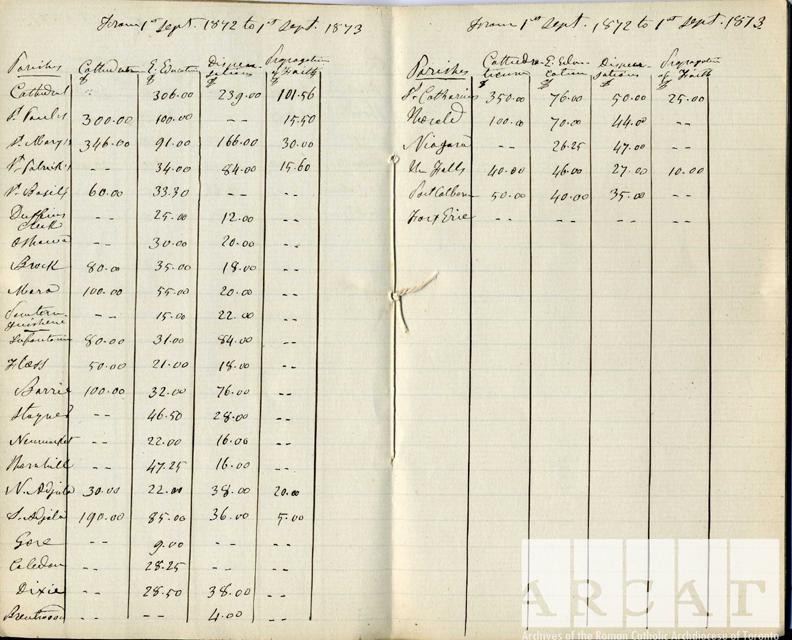 From 1st Sept. 1872 to 1st Sept. 1873
Parishes Cathedraticum E. Education Dispensations Propagation of Faith
$ $ $ $
Cathedral -- 306.00 239.00 101.56
St Paul's 300.00 100.00 -- 15.50
St Mary's 346.00 91.00 166.00 30.00
St Patrick's -- 34.00 84.00 15.60
St Basil's 60.00 33.30 -- --
Duffins Creek -- 25.00 12.00 --
Oshawa -- 30.00 20.00 --
Brock 80.00 35.00 18.00 --
Mara 100.00 55.00 20.00 --
-- 15.00 22.00 --
80.00 31.00 84.00 --
Floss 50.00 21.00 18.00 --
Barrie 100.00 32.00 76.00 --
Stayner -- 46.50 28.00 --
Newmarket -- 22.00 16.00 --
Thornhill -- 47.25 16.00 --
N. Adjala 30.00 22.00 38.00 20.00
S. Adjala 190.00 85.00 36.00 5.00
Gore -- 9.00 -- --
Caledon -- 28.25 -- --
Dixie -- 28.50 38.00 --
Brentwood -- -- 4.00 --
From 1st Sept. 1872 to 1st Sept. 1873
Parishes Cathedra-ticum E. Edu-cation Dispen-sations Propagation of Faith
$ $ $ $
St Catharines 350.00 76.00 50.00 25.00
Thorold 100.00 70.00 44.00 --
Niagara -- 26.25 47.00 --
Falls 40.00 46.00 27.00 10.00
Port Colborne 50.00 40.00 35.00 --
Fort Erie -- -- -- --
ARCAT
Archives of the Roman Catholic Archdiocese of Toronto